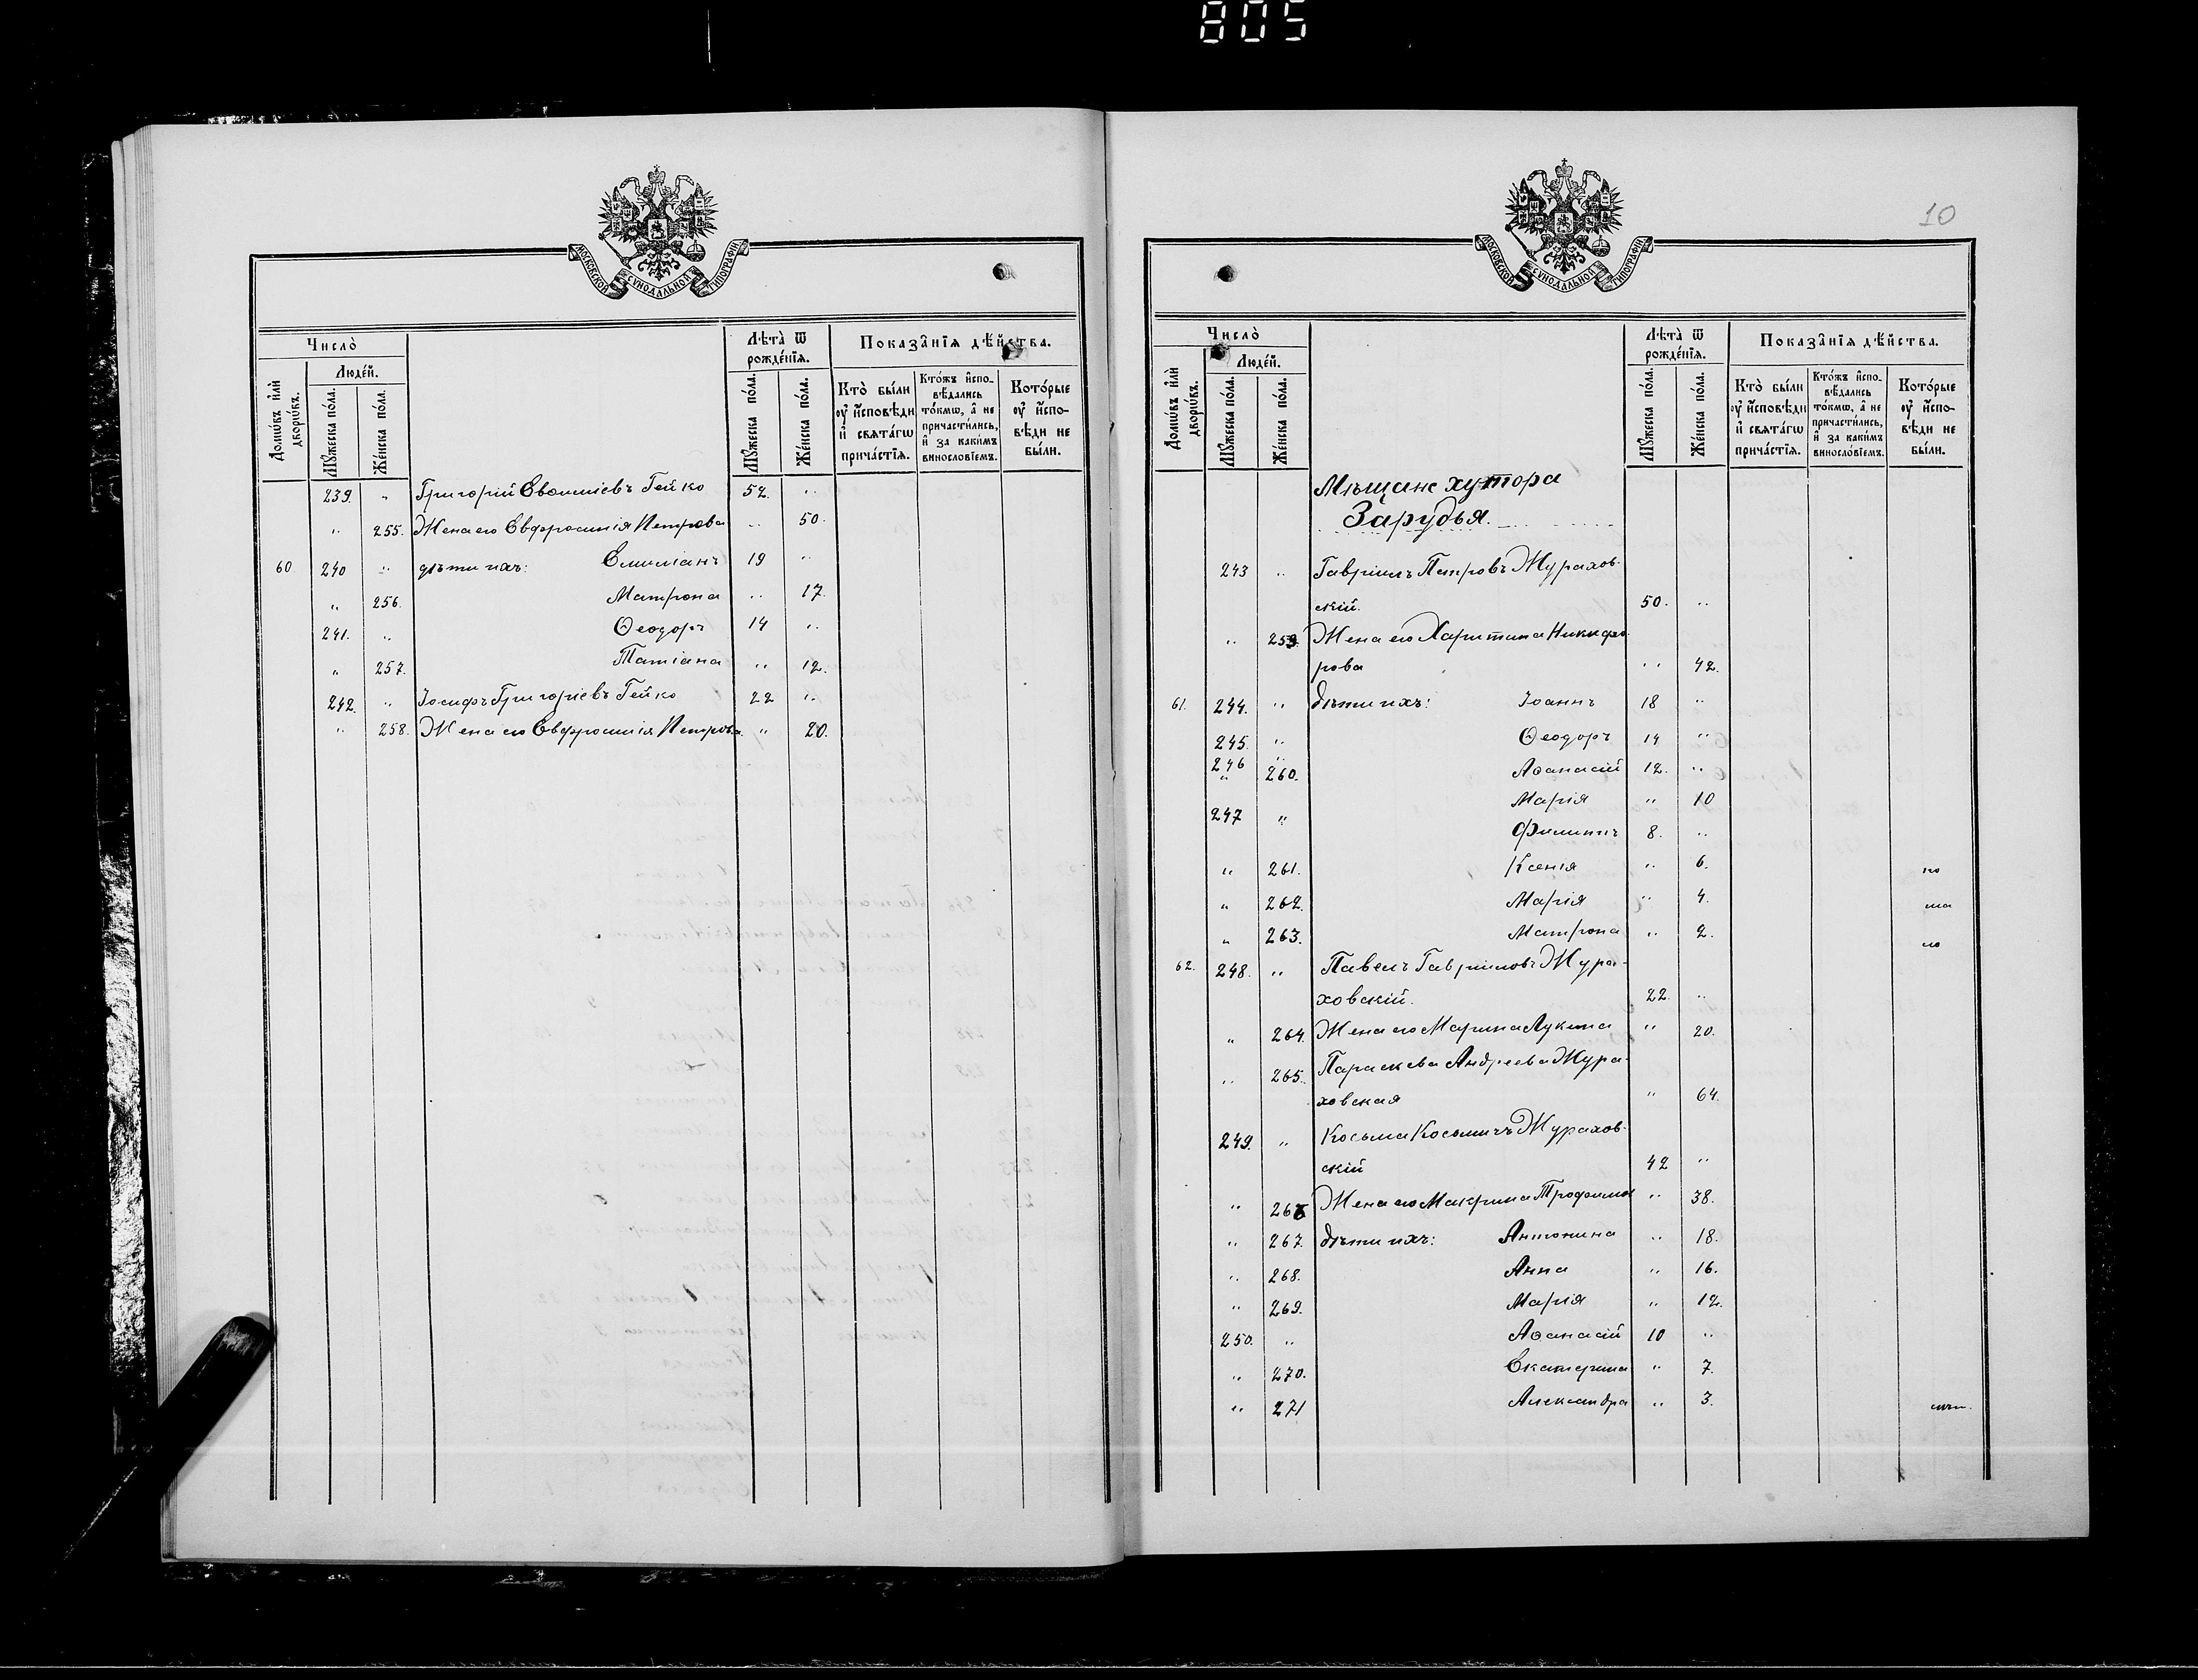 805
МОСКОВСКОЙ СѴНОДАЛЬНОЙ ТИПОГРАФІИ
Число̀
Домѡ́въ и҆лѝ дворѡ́въ.
Люде́й.
Мꙋ́жеска по́ла.
Же́нска по́ла.
Лѣта̀ ѿ рожде́нїѧ.
Мꙋ́жеска по́ла.
Же́нска по́ла.
Показа̑нїѧ дѣ́йства.
Кто̀ бы́ли оу҆ и҆сповѣ́ди и҆ свѧта́гѡ прича́стїѧ.
Кто́жъ и҆спо-вѣ́дались то́кмѡ, а҆ не причасти́лись, и҆ за каки́мъ винослові́емъ.
Кото́рые оу҆ и҆спо-вѣ́ди не бы́ли.
239. " Григорій Гейко 52. "
" 255. Жена его Евфросинія Петрова " 50.
60. 240 " дѣти ихъ: Емиліанъ 19 "
" 256. Матрона " 17.
241. " Ѳеодоръ 14 "
" 257. Татіана " 12.
242. " Іосифъ Григоріевъ Гейко 22 "
" 258. Жена его Евфросинія Петрова " 20.
10
МОСКОВСКОЙ СѴНОДАЛЬНОЙ ТИПОГРАФІИ
Число̀
Домѡ́въ и҆лѝ дворѡ́въ.
Люде́й.
Мꙋ́жеска по́ла.
Же́нска по́ла.
Лѣта̀ ѿ рожде́нїѧ.
Мꙋ́жеска по́ла.
Же́нска по́ла.
Показа̑нїѧ дѣ́йства.
Кто̀ бы́ли оу҆ и҆сповѣ́ди и҆ свѧта́гѡ прича́стїѧ.
Кто́жъ и҆спо-вѣ́дались то́кмѡ, а҆ не причасти́лись, и҆ за каки́мъ винослові́емъ.
Кото́рые оу҆ и҆спо-вѣ́ди не бы́ли.
Мѣщане хутора
Зарудья.
243 " Гавріилъ Петровъ Журахов-
скій. 50. "
" 259. Жена его Харитина Никифо-
рова " 42.
61. 244. " дѣти ихъ: Іоаннъ 18 "
245. " Ѳеодоръ 14 "
246 " Аѳанасій 12. "
" 260. Марія " 10
247 " Филиппъ 8. "
" 261. Ксенія " 6.
" 262. Марія " 4.
" 263. Матрона " 2.
62. 248. " Павелъ Гавріиловъ Жура-
ховскій. 22. "
" 264. Жена его Марина Лукина " 20.
" 265. Параскева Андреева Жура-
ховская " 64.
249. " Косьма Косьмичъ Журахов-
скій 42 "
" 266 Жена его Макрина Трофимов " 38.
" 267. дѣти ихъ: Антонина " 18.
" 268. Анна " 16.
" 269. Марія " 12.
250. " Аѳанасій 10 "
" 270. Екатерина " 7.
" 271 Александра " 3.